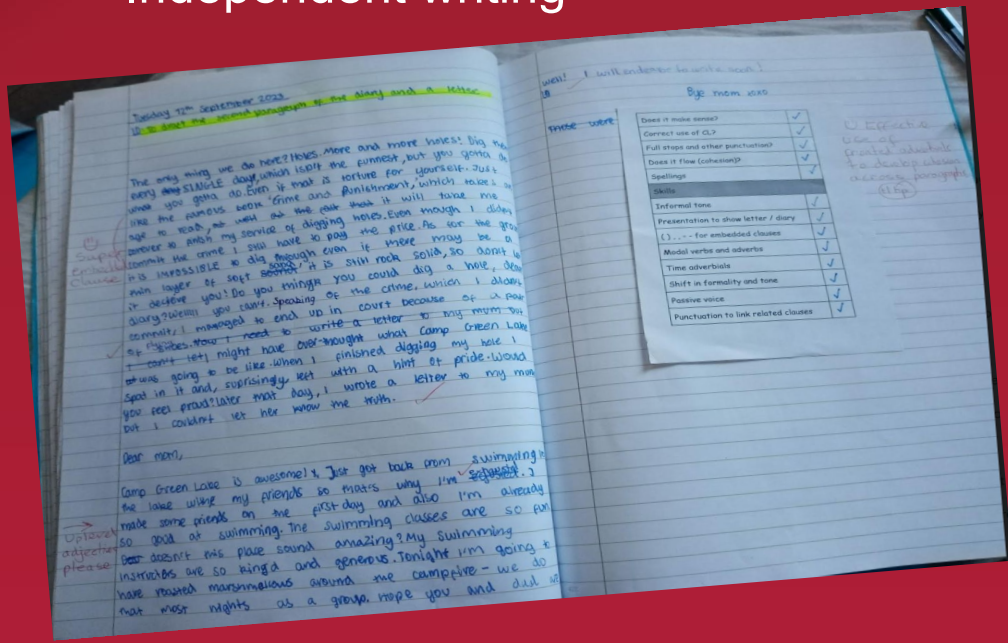 Independent writing
Tuesday 12th September 2023
LO to draft the second paragraph of the diary and a letter
The only thing we do here? Holes. More and more holes! Dig
every SINGLE day, which isn't the funnest, but you gotta do
what you gotta do. Even if that is torture for yourself. Just
like the famous book 'Crime and Punishment,' which takes
age to read, it will take me
forever to finish my service of digging holes. Even though I didn't
commit the crime I still have to pay the price. As for the
it is IMPOSSIBLE to dig through even if there may be a
thin layer of soft sand, it is still rock solid, so don't
it decieve you! Do you think you could dig a hole,
diary? Well! you can't. Speaking of the crime, which I didn't
commit, I managed to end up in court because of a pair
of Now I need to write a letter to my mum but
I can't let I might have over-thought what Camp Green Lake
was going to be like. When I finished digging my hole I
spat in it and, suprisingly left with a hint of pride. Would
you feel proud? Later that day, I wrote a letter to my mom
but I couldn't let her know the truth.
Super
embedded
clause
Dear mom,
Camp Green Lake is awesome! I, Just got back from swimming in
the lake with my friends so that's why I'm . I
made some friends on the first day and also I'm already
so good at swimming. The swimming classes are so fun
doesn't this place sound amazing? My swimming
instructors are so kind and generous. Tonight I'm going to
have roasted marshmallows around the campfire - we do
that most nights as a group. Hope you and dad
Uplevel
adjectives
please
well! I will endevor to write soon!
Bye mom xoxo
These were
Does it make sense?
Correct use of CL?
Full stops and other punctuation?
Does it flow (cohesion)?
Spellings
Skills
Informal tone
Presentation to show letter / diary
( ) , , - - for embedded clauses
Modal verbs and adverbs
Time adverbials
Shift in formality and tone
Passive voice
Punctuation to link related clauses
Effective
use of
fronted adverbials
across paragraphs